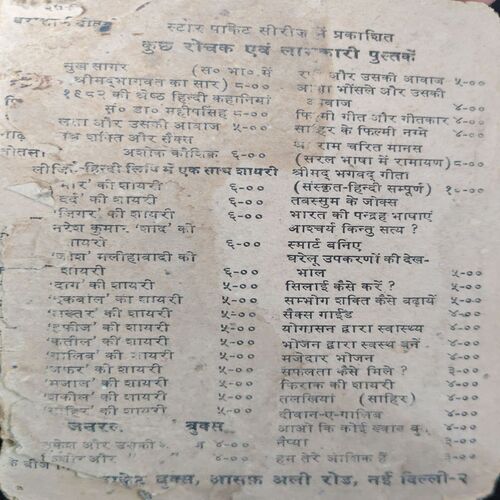 स्टार पाकेट सीरीज़ में प्रकाशित
कुछ रोचक एवं लाभकारी पुस्तकें
सुख सागर (स० भा० में
श्रीमद्भागवत का सार) ८-००
१९८२ की श्रेष्ठ हिन्दी कहानियां
सं० डा० महीपसिंह ८-००
लता और उसकी आवाज ५-००
शक्ति और सैक्स
अशोक कौशिक ६-००
हिन्दी लिपि में एक साथ शायरी
की शायरी ६-००
'दर्द' की शायरी ६-००
'जिगर' की शायरी ६-००
नरेश कुमार 'शाद' की
शायरी ६-००
मलीहाबादी की
शायरी ६-००
'दाग' की शायरी ५-००
'इकबाल' की शायरी ५-००
'अख्तर' की शायरी ५-००
'हफीज' की शायरी ५-००
'कतील' की शायरी ५-००
'गालिब' की शायरी ५-००
'जफर' की शायरी ५-००
'मजाज' की शायरी ५-००
'शकील' की शायरी ५-००
'साहिर' की शायरी ५-००
जनरल बुक्स
मुकेश और उसकी ४-००
और ४-००
और उसकी आवाज ५-००
आशा भोंसले और उसकी
आवाज ४-००
फिल्मी गीत और गीतकार ४-००
साहिर के फिल्मी नग्मे ४-००
राम चरित मानस
(सरल भाषा में रामायण) ८-००
श्रीमद् भगवद् गीता
(संस्कृत-हिन्दी सम्पूर्ण)
तबस्सुम के जोक्स
भारत की पन्द्रह भाषाएं
आश्चर्य किन्तु सत्य ?
स्मार्ट बनिए
घरेलू उपकरणों की देख-
भाल ५-००
सिलाई कैसे करें ? ५-००
सम्भोग शक्ति कैसे बढ़ायें ५-००
सैक्स गाईड ४-००
योगासन द्वारा स्वास्थ्य ४-००
भोजन द्वारा स्वस्थ बनें ४-००
मजेदार भोजन ४-००
सफलता कैसे मिले ? ३-००
फिराक की शायरी ४-००
तलखियां (साहिर) ४-००
दीवान-ए-गालिब ४-००
आओ कि कोई ख्वाब ४-००
नैय्या ३-००
हम तेरे आशिक हैं ३-००
पाकेट बुक्स, आसफ अली रोड, नई दिल्ली-२